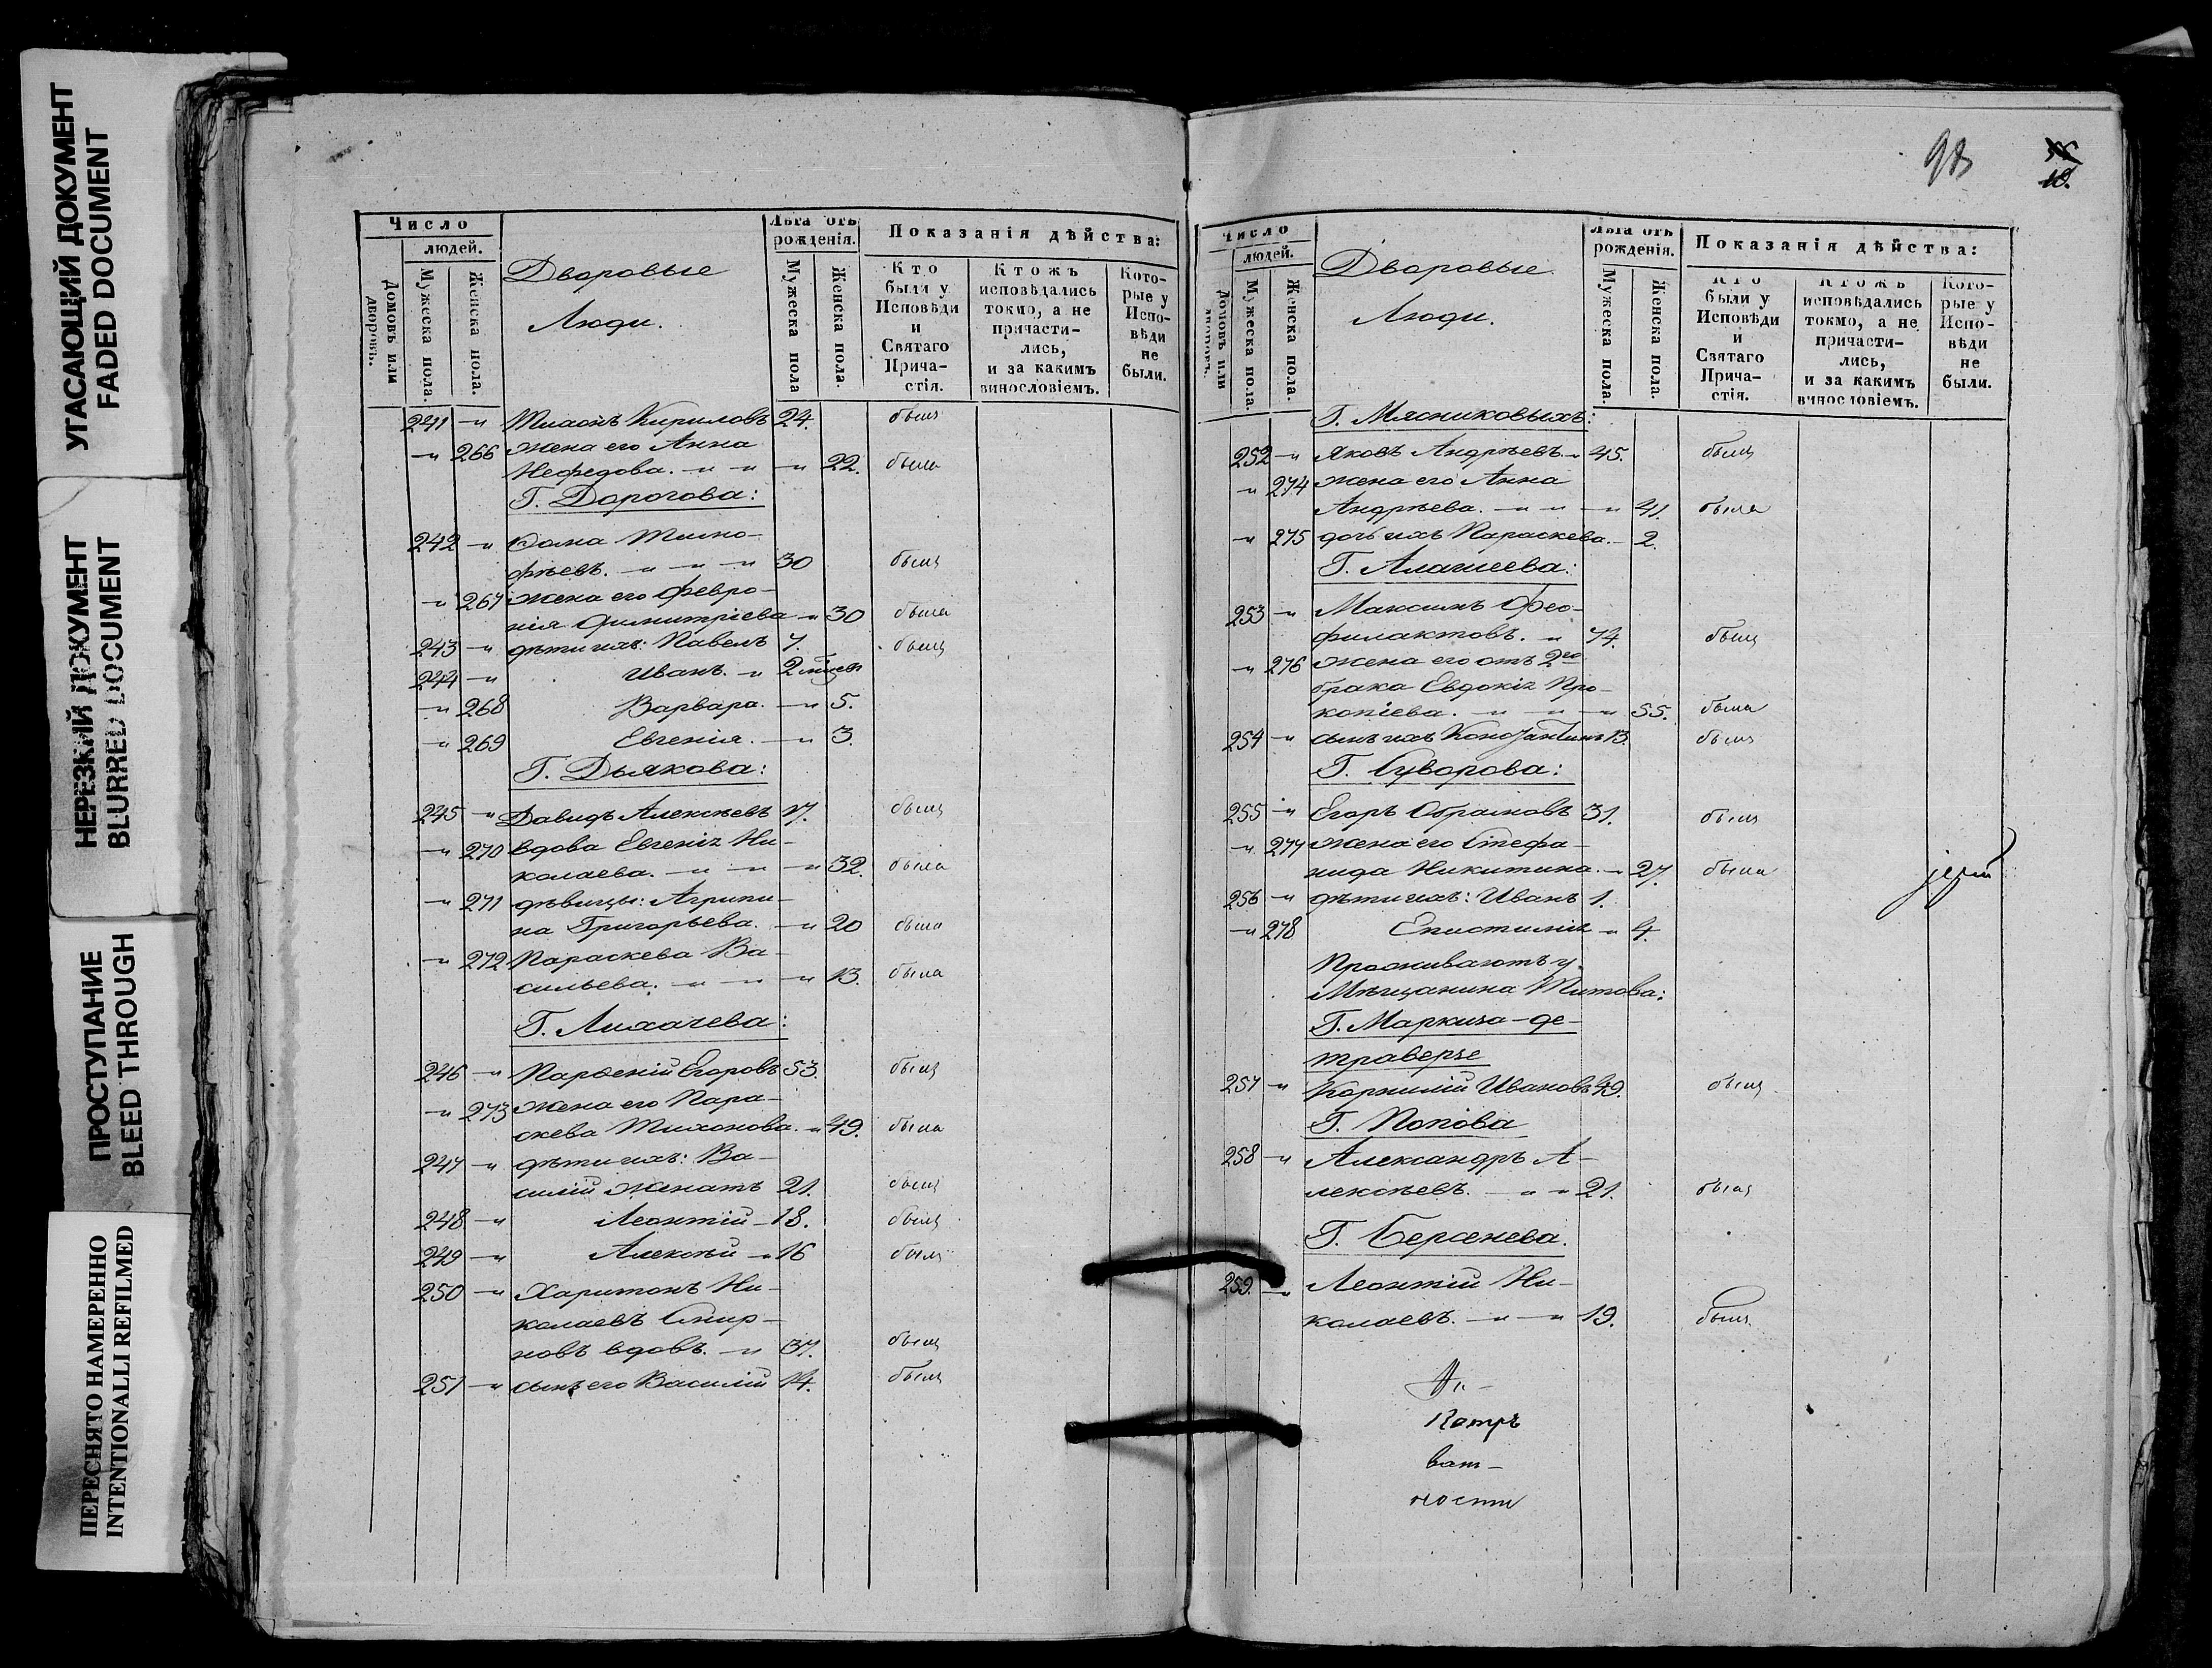 УГАСАЮЩИЙ ДОКУМЕНТ
FADED DOCUMENT
НЕРЕЗКИЙ ДОКУМЕНТ
BLURRED DOCUMENT
ПРОСТУПАНИЕ
BLEED THROUGH
ПЕРЕСНЯТО НАМЕРЕННО
INTENTIONALLI REFILMED
Число
людей.
Домовъ или дворовъ.
Мужеска пола.
Женска пола.
Дворовые
Люди.
Лѣта отъ рожденія.
Мужеска пола
Женска пола.
Показанія дѣйства:
Кто были у Исповѣди и Святаго Причастія.
Ктожъ исповѣдались токмо, а не причастились, и за какимъ винословіемъ.
Которые у Исповѣди не были.
241 - Тихонъ Кириловъ 24. былъ
- 266 жена его Анна
Нефедова. - 22. была
Г. Дорогова:
242 - Ѳома Тимо-
фѣевъ. - 30 былъ
- 267 жена его Февро-
нія Димитріева - 30 была
243 - дѣти ихъ: Павелъ 7. былъ
244 - Иванъ. - 2 мѣсяц
- 268 Варвара. - 5.
- 269 Евгенія. - 3.
Г. Дьякова:
245 - Давидъ Алексѣевъ 17. былъ
- 270 вдова Евгенія Ни-
колаева. - 32. была
- 271 дѣвицы: Агрипи-
на Григорьева. - 20 была
- 272 Параскева Ва-
сильева. - 13. была
Г. Лихачева:
246 - Парѳеній Егоровъ 53. былъ
- 273 жена его Пара-
скева Тихонова. - 49. была
247 - дѣти ихъ: Ва-
силій женатъ 21. былъ
248 - Леонтій - 18. былъ
249 - Алексѣй - 16 былъ
250 - Харитонъ Ни-
колаевъ Смир-
новъ вдовъ. - 37. былъ
251 - сынъ его Василій 14. былъ
98
10.
Число
людей.
Домовъ или дворовъ.
Мужеска пола.
Женска пола.
Дворовые
Люди.
Лѣта отъ рожденія.
Мужеска пола.
Женска пола.
Показанія дѣйства:
Кто были у Исповѣди и Святаго Причастія.
Ктожъ исповѣдались токмо, а не причастились, и за какимъ винословіемъ.
Которые у Исповѣди не были.
Г. Мясниковыхъ:
252 - Яковъ Андрѣевъ. - 45. былъ
- 274 жена его Анна
Андрѣева. - 41. была
- 275 дочь ихъ Параскева. - 2.
Г. Алашеева:
253 - Максимъ Фео-
филактовъ. - 74. былъ
- 276 жена его отъ 2го
брака Евдокія Про-
копіева. - 55. была
254 - сынъ ихъ Константинъ 13. былъ
Г. Суворова:
255 - Егоръ Абрамовъ 31. былъ
- 277 жена его Стефа-
нида Никитина. - 27. была
256 - дѣти ихъ: Иванъ 1.
- 278 Епистимія - 4.
Проживаютъ у
Мѣщанина Титова:
Г. Маркиза-де-
траверзе
257 - Корнилій Ивановъ 49. былъ
Г. Попова
258 - Александръ А-
лексѣевъ. - 21. былъ
Г. Берсенева.
259. - Леонтій Ни-
колаевъ. - 19. былъ
Петръ
ват-
ности